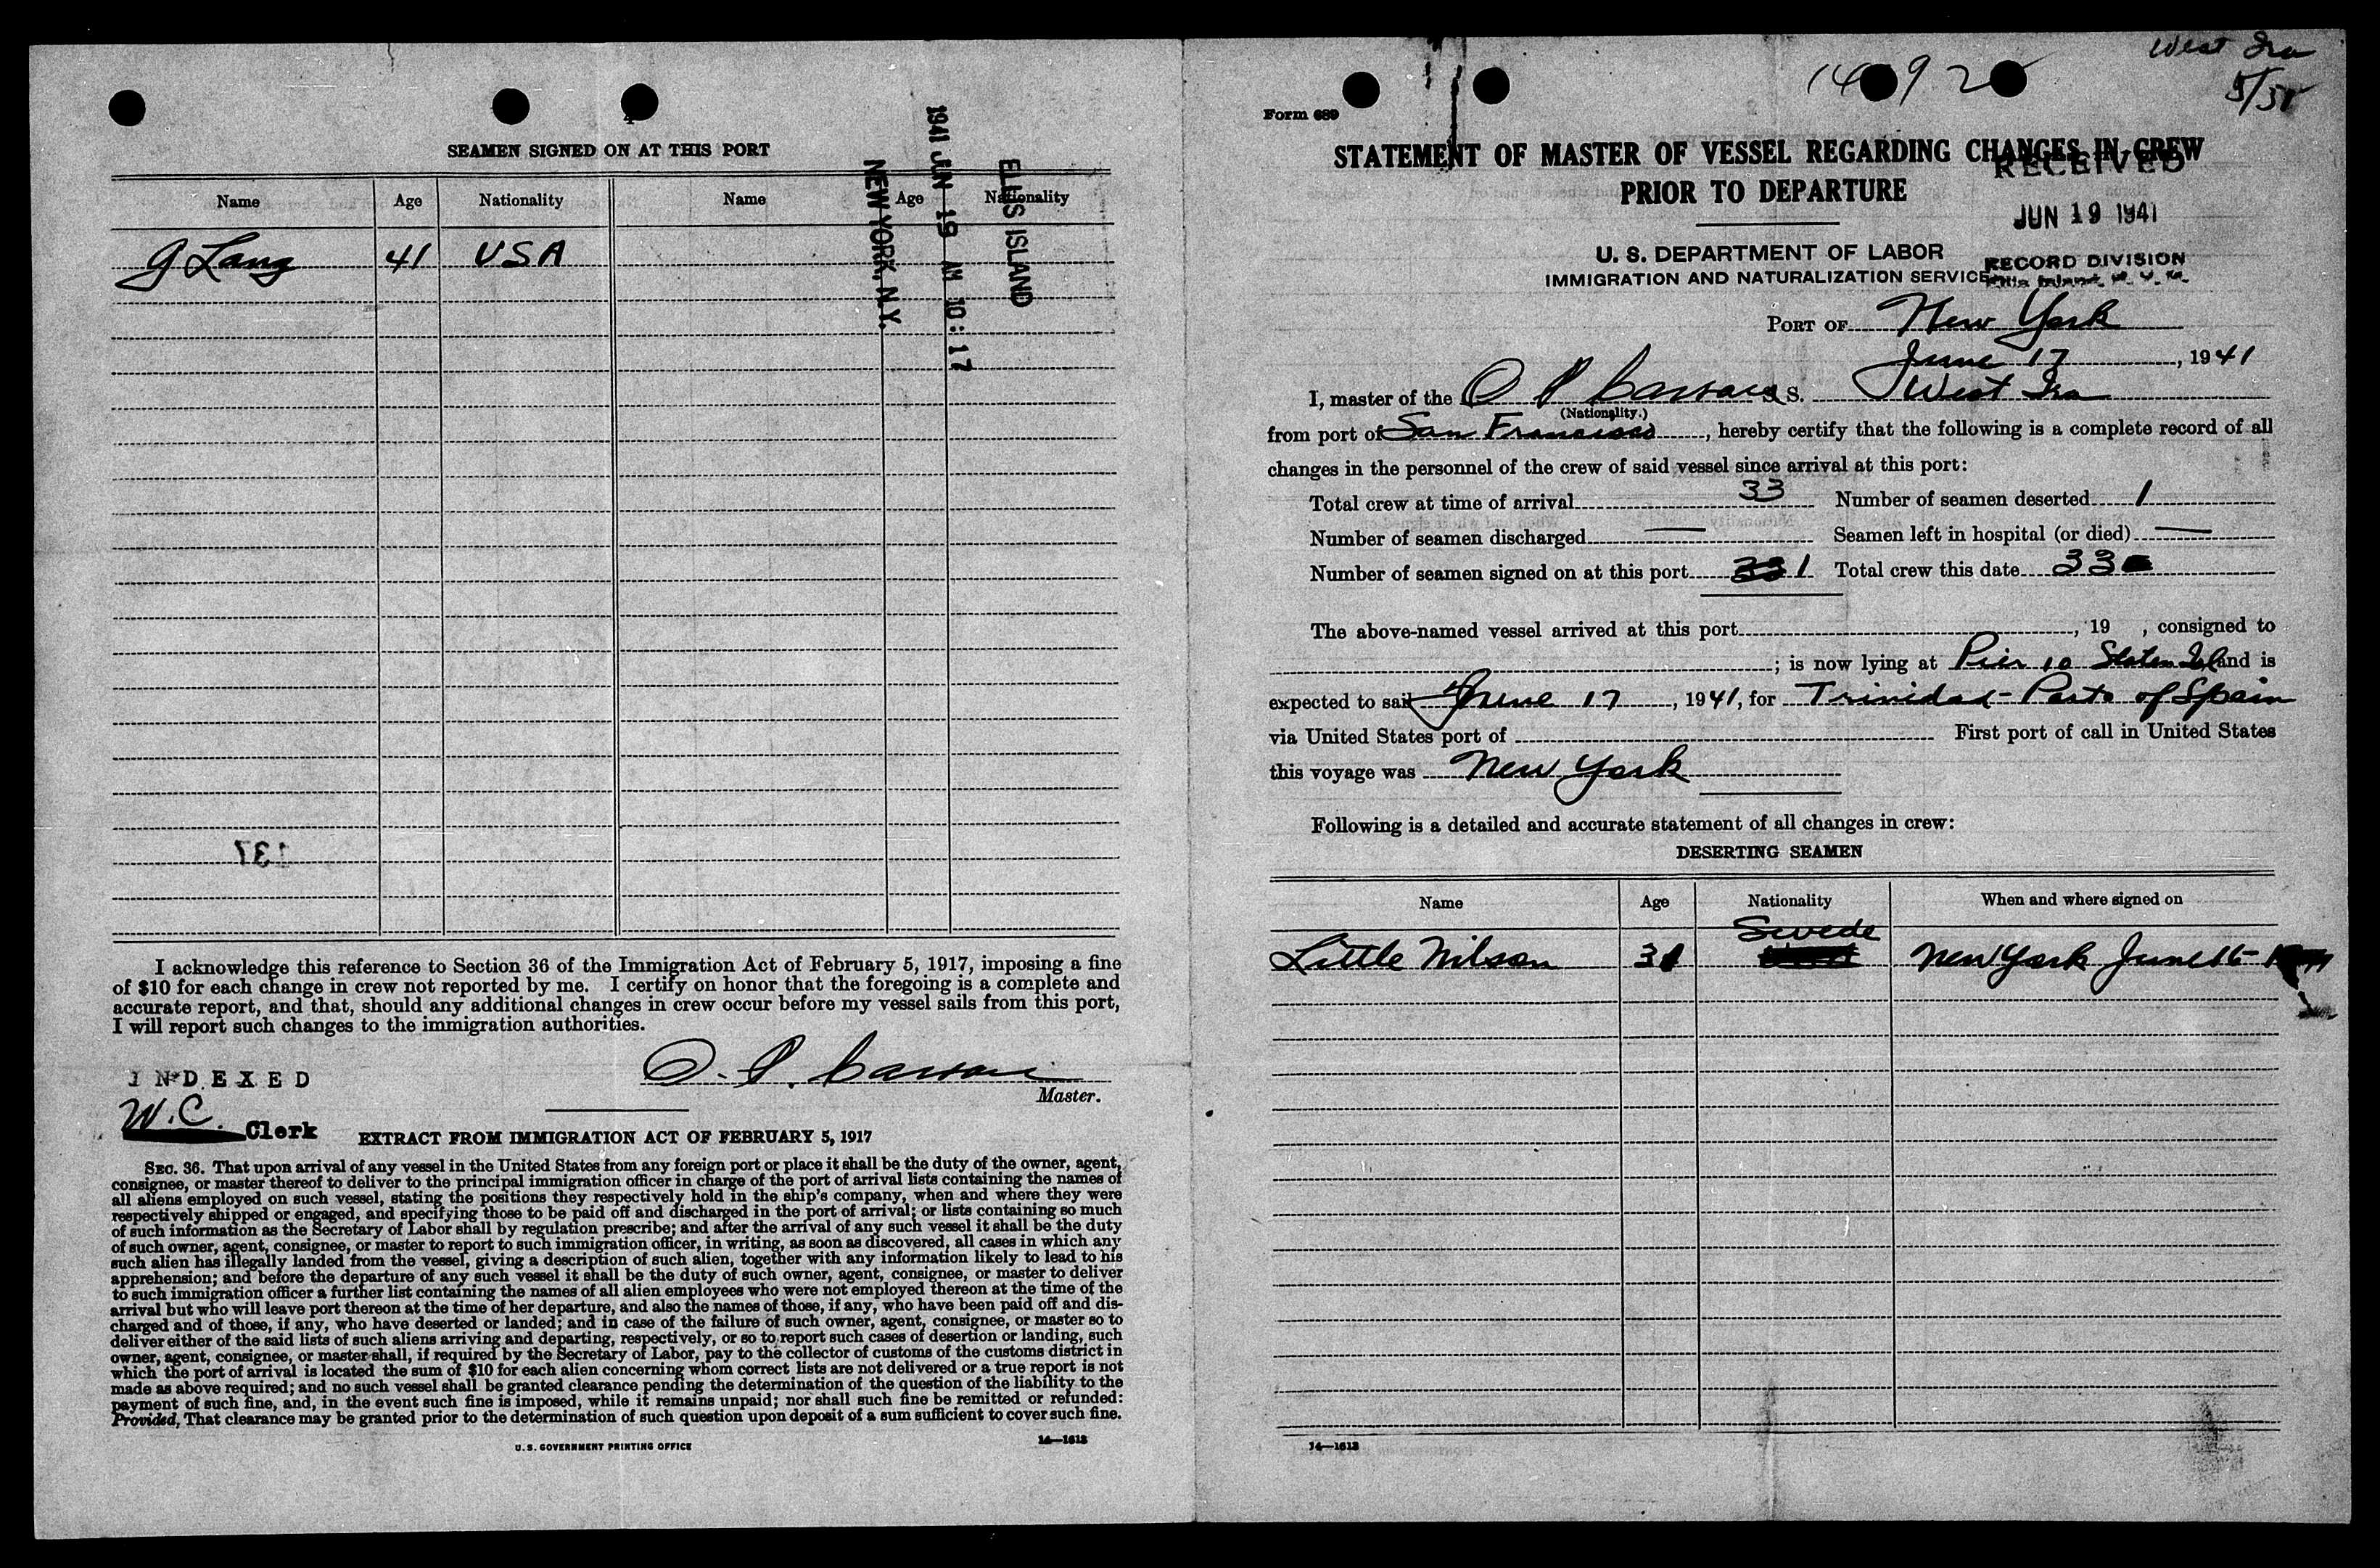 SEAMEN SIGNED ON AT THIS PORT
Name Age Nationality Name Age Nationality
G Lang 41 USA
ELLIS ISLAND
1941 JUN 19 AM 10:17
NEW YORK, N.Y.
137
I acknowledge this reference to Section 36 of the Immigration Act of February 5, 1917, imposing a fine
of $10 for each change in crew not reported by me. I certify on honor that the foregoing is a complete and
accurate report, and that, should any additional changes in crew occur before my vessel sails from this port,
I will report such changes to the immigration authorities.
INDEXED
W.C. Clerk
O. P.
Master.
EXTRACT FROM IMMIGRATION ACT OF FEBRUARY 5, 1917
SEC. 36. That upon arrival of any vessel in the United States from any foreign port or place it shall be the duty of the owner, agent,
consignee, or master thereof to deliver to the principal immigration officer in charge of the port of arrival lists containing the names of
all aliens employed on such vessel, stating the positions they respectively hold in the ship's company, when and where they were
respectively shipped or engaged, and specifying those to be paid off and discharged in the port of arrival; or lists containing so much
of such information as the Secretary of Labor shall by regulation prescribe; and after the arrival of any such vessel it shall be the duty
of such owner, agent, consignee, or master to report to such immigration officer, in writing, as soon as discovered, all cases in which any
such alien has illegally landed from the vessel, giving a description of such alien, together with any information likely to lead to his
apprehension; and before the departure of any such vessel it shall be the duty of such owner, agent, consignee, or master to deliver
to such immigration officer a further list containing the names of all alien employees who were not employed thereon at the time of the
arrival but who will leave port thereon at the time of her departure, and also the names of those, if any, who have been paid off and dis-
charged and of those, if any, who have deserted or landed; and in case of the failure of such owner, agent, consignee, or master so to
deliver either of the said lists of such aliens arriving and departing, respectively, or so to report such cases of desertion or landing, such
owner, agent, consignee, or master shall, if required by the Secretary of Labor, pay to the collector of customs of the customs district in
which the port of arrival is located the sum of $10 for each alien concerning whom correct lists are not delivered or a true report is not
made as above required; and no such vessel shall be granted clearance pending the determination of the question of the liability to the
payment of such fine, and, in the event such fine is imposed, while it remains unpaid; nor shall such fine be remitted or refunded:
Provided, That clearance may be granted prior to the determination of such question upon deposit of a sum sufficient to cover such fine.
U. S. GOVERNMENT PRINTING OFFICE 14—1613
West Ira
Form 689
STATEMENT OF MASTER OF VESSEL REGARDING CHANGES IN CREW
PRIOR TO DEPARTURE
RECEIVED
JUN 19 1941
RECORD DIVISION
U. S. DEPARTMENT OF LABOR
IMMIGRATION AND NATURALIZATION SERVICE
PORT OF New York
June 17, 1941
I, master of the O P S. S. West Ira
(Nationality.)
from port of San Francisco, hereby certify that the following is a complete record of all
changes in the personnel of the crew of said vessel since arrival at this port:
Total crew at time of arrival 33 Number of seamen deserted 1
Number of seamen discharged — Seamen left in hospital (or died) —
Number of seamen signed on at this port 1 Total crew this date 33
The above-named vessel arrived at this port , 19 , consigned to
; is now lying at Pier 10 Staten Isl and is
expected to sail June 17, 1941, for Trinidad - Porto of Spain
via United States port of First port of call in United States
this voyage was New York
Following is a detailed and accurate statement of all changes in crew:
DESERTING SEAMEN
Name Age Nationality When and where signed on
Little Nilson 31 Swede New York June 16-
14—1613